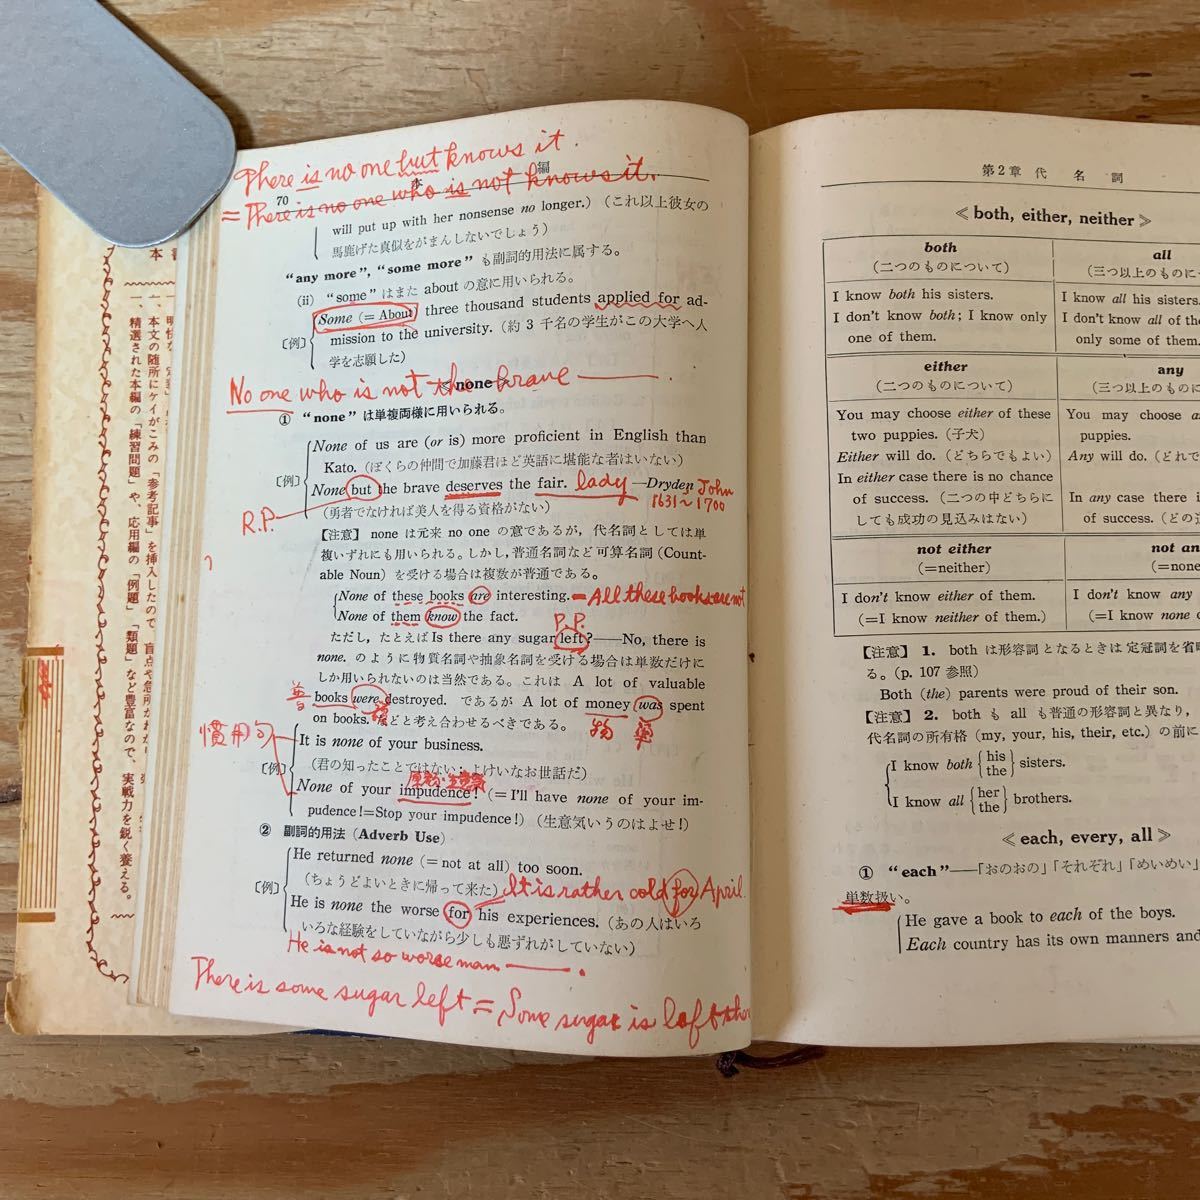 There is no one but knows it.
= There is no one who is not knows it.
70
本 編
will put up with her nonsense no longer.) (これ以上彼女の
馬鹿げた真似をがまんしないでしょう)
"any more", "some more" も副詞的用法に属する。
(ii) "some" はまた about の意に用いられる。
Some (= About) three thousand students applied for ad-
〔例〕 mission to the university. (約 3 千名の学生がこの大学へ入
学を志願した)
≪ none ≫
No one who is not the brave ―.
① "none" は単複両様に用いられる。
None of us are (or is) more proficient in English than
Kato. (ぼくらの仲間で加藤君ほど英語に堪能な者はいない)
〔例〕 None but the brave deserves the fair. lady —Dryden John
1631~1700
R.P.
(勇者でなければ美人を得る資格がない)
【注意】 none は元来 no one の意であるが, 代名詞としては単
複いずれにも用いられる。しかし, 普通名詞など可算名詞 (Count-
able Noun) を受ける場合は複数が普通である。
None of these books are interesting. = All these books are not
None of them know the fact.
P.P.
ただし, たとえば Is there any sugar left?——No, there is
none. のように物質名詞や抽象名詞を受ける場合は単数だけに
しか用いられないのは当然である。これは A lot of valuable
普 books were destroyed. であるが A lot of money was spent
on books. などと考え合わせるべきである。
物
慣用句
It is none of your business.
〔例〕 (君の知ったことではない・よけいなお世話だ)
None of your impudence! (= I'll have none of your im-
pudence!=Stop your impudence!) (生意気いうのはよせ!)
② 副詞的用法 (Adverb Use)
He returned none (= not at all) too soon.
〔例〕 (ちょうどよいときに帰って来た) It is rather cold for April.
He is none the worse for his experiences. (あの人はいろ
いろな経験をしていながら少しも悪ずれがしていない)
He is not so worse man ―.
There is some sugar left = Some sugar is left there
第2章 代 名 詞
≪ both, either, neither ≫
both
(二つのものについて)
all
(三つ以上のものに
I know both his sisters.
I don't know both; I know only
one of them.
I know all his sisters.
I don't know all of the
only some of them.
either
(二つのものについて)
any
(三つ以上のものに
You may choose either of these
two puppies. (子犬)
Either will do. (どちらでもよい)
In either case there is no chance
of success. (二つの中どちらに
しても成功の見込みはない)
You may choose a
puppies.
Any will do. (どれで
In any case there i
of success. (どの
not either
(=neither)
not an
(=none
I don't know either of them.
(=I know neither of them.)
I don't know any
(=I know none o
【注意】 1. both は形容詞となるときは定冠詞を省
る。(p. 107 参照)
Both (the) parents were proud of their son.
【注意】 2. both も all も普通の形容詞と異なり,
代名詞の所有格 (my, your, his, their, etc.) の前に
I know both {his the} sisters.
I know all {her the} brothers.
≪ each, every, all ≫
① "each"——「おのおの」「それぞれ」「めいめい」
単数扱い。
He gave a book to each of the boys.
Each country has its own manners and